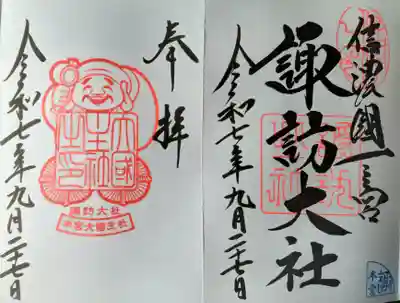 信濃國一之宮
諏訪大社
令和七年九月二十七日
奉拝
大國主神之印
諏訪大社
本宮大國主社
令和七年九月二十七日